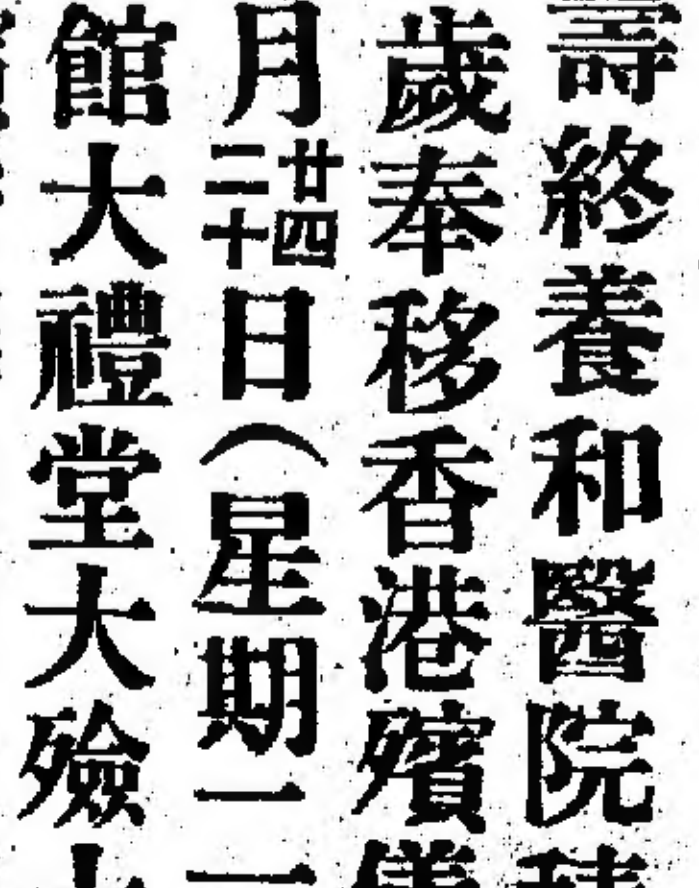 壽終養和醫院
歲奉移香港殯儀
月廿四二十日(星期二
館大禮堂大殮